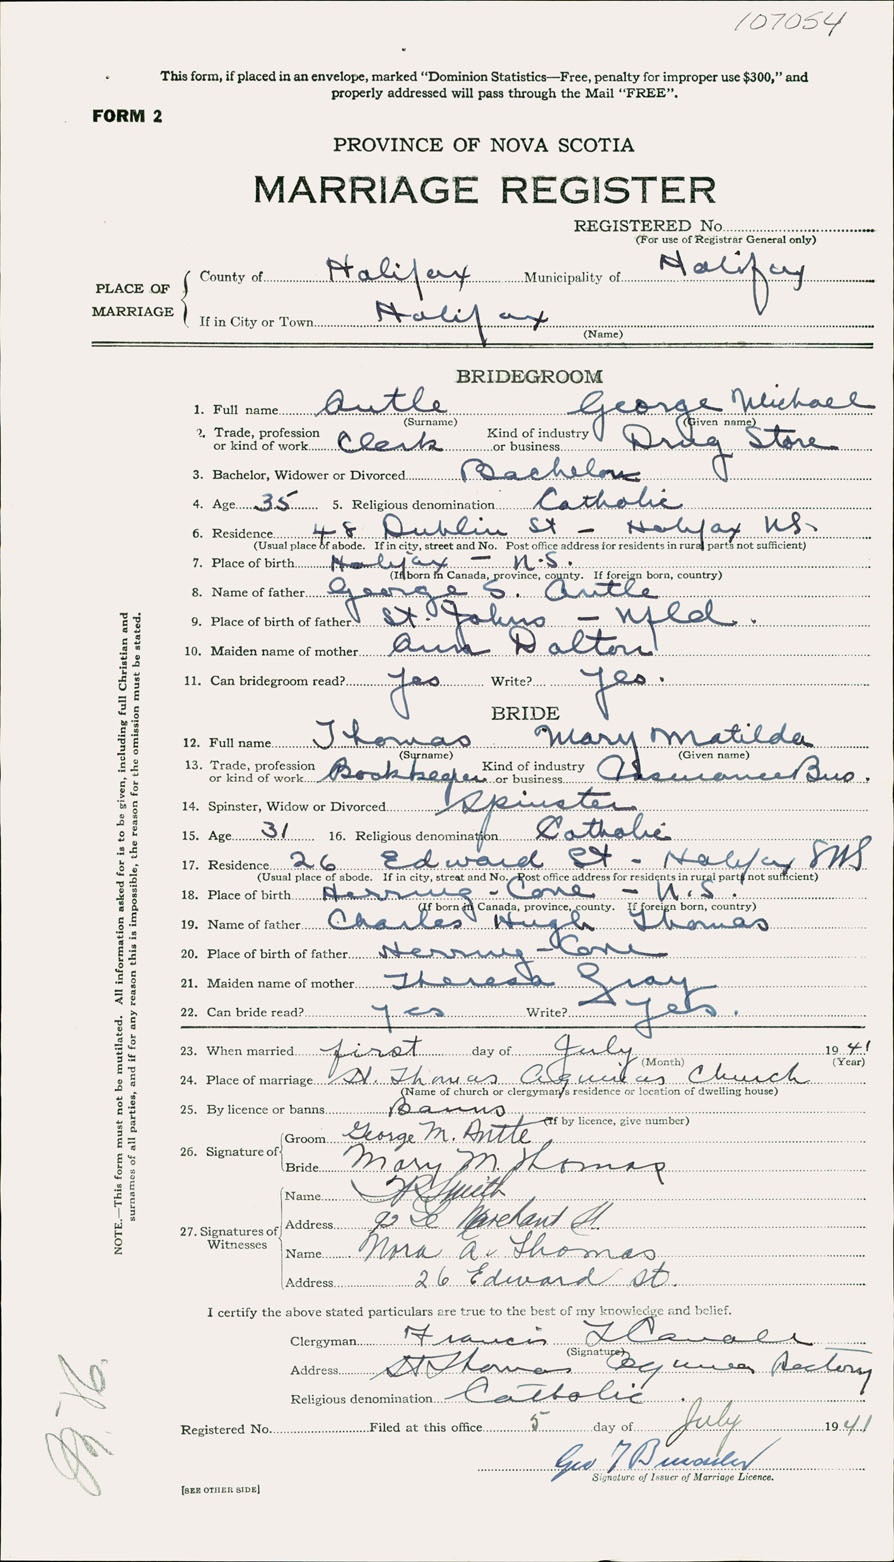 107054
This form, if placed in an envelope, marked “Dominion Statistics—Free, penalty for improper use $300,” and
properly addressed will pass through the Mail “FREE”.
FORM 2
PROVINCE OF NOVA SCOTIA
MARRIAGE REGISTER
REGISTERED No.
(For use of Registrar General only)
PLACE OF MARRIAGE
County of Halifax Municipality of Halifax
If in City or Town Halifax
(Name)
BRIDEGROOM
1. Full name Antle George Michael
(Surname) (Given name)
2. Trade, profession or kind of work Clerk Kind of industry or business Drug Store
3. Bachelor, Widower or Divorced Bachelor
4. Age 35 5. Religious denomination Catholic
6. Residence 48 Dublin St - Halifax N.S.
(Usual place of abode. If in city, street and No. Post office address for residents in rural parts not sufficient)
7. Place of birth Halifax - N.S.
(If born in Canada, province, county. If foreign born, country)
8. Name of father George S. Antle
9. Place of birth of father St. Johns - Nfld.
10. Maiden name of mother Ann Dalton
11. Can bridegroom read? Yes Write? Yes.
BRIDE
12. Full name Thomas Mary Matilda
(Surname) (Given name)
13. Trade, profession or kind of work Bookkeeper Kind of industry or business Assurance Bus.
14. Spinster, Widow or Divorced Spinster
15. Age 31 16. Religious denomination Catholic
17. Residence 26 Edward St - Halifax NS
(Usual place of abode. If in city, street and No. Post office address for residents in rural parts not sufficient)
18. Place of birth Herring-Cove - N.S.
(If born in Canada, province, county. If foreign born, country)
19. Name of father Charles Hugh Thomas
20. Place of birth of father Herring-Cove
21. Maiden name of mother Theresa Gray
22. Can bride read? Yes Write? Yes.
23. When married first day of July 1941
(Month) (Year)
24. Place of marriage St. Thomas Aquinas Church
(Name of church or clergyman's residence or location of dwelling house)
25. By licence or banns Banns
(If by licence, give number)
26. Signature of
Groom George M. Antle
Bride Mary M. Thomas
27. Signatures of Witnesses
Name Smith
Address 90 Le Marchant St
Name Nora A. Thomas
Address 26 Edward St.
I certify the above stated particulars are true to the best of my knowledge and belief.
Clergyman Francis
(Signature)
Address St Thomas Aquinas Rectory
Religious denomination Catholic
Registered No. Filed at this office 5 day of July 1941
Geo T
Signature of Issuer of Marriage Licence.
[SEE OTHER SIDE]
NOTE.—This form must not be mutilated. All information asked for is to be given, including full Christian and
surnames of all parties, and if for any reason this is impossible, the reason for the omission must be stated.